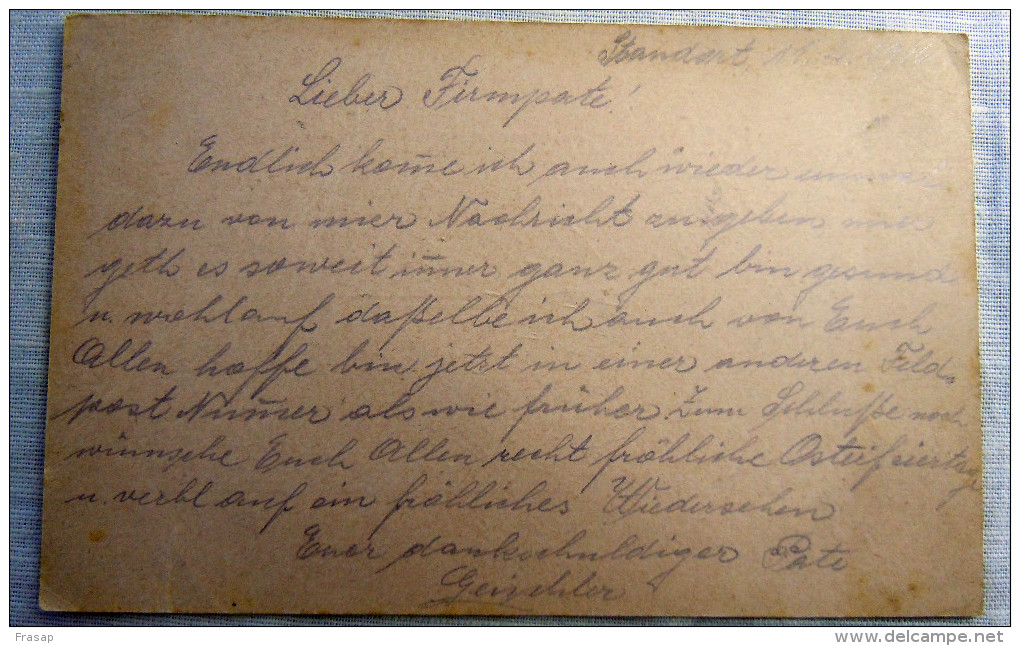 Standort
Lieber Firmpate!
Endlich kom̄e ich auch wieder
dazu von mier Nachricht zu geben mir
geth es soweit im̄er ganz gut bin gesund
u. wohlauf daßelbe ich auch von Euch
Allen hoffe bin jetzt in einer anderen Feld-
post Num̄er als wie früher. Zum Schluße noch
wünsche Euch Allen recht fröhliche Osterfeiertage
u. verbl auf ein fröhliches Wiedersehen
Euer dankschuldiger Pate
Frasap
www.delcampe.net